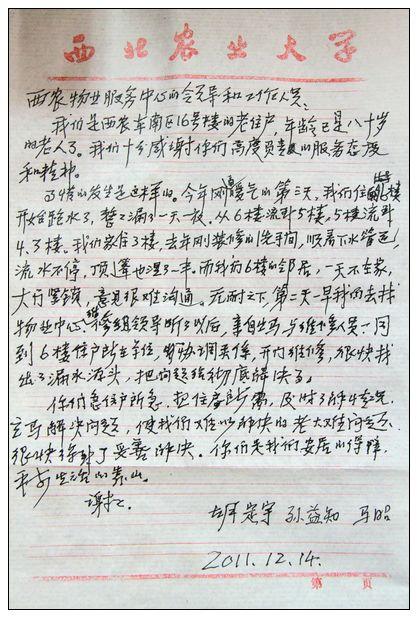 西北农业大学
西农物业服务中心的各领导和工作人员、
我们是西农东南区16号楼的老住户，年龄已是八十岁
的老人了。我们十分感谢你们高度负责的服务态度
和精神。
事情的发生是这样的。今年刚通暖气的第三天，我们住的6楼
开始跑水了，整整漏了一天一夜，从6楼流到5楼，5楼流到
4、3楼。我们家住3楼，去年刚装修的洗手间，顺着下水管道
流水不停，顶罩也湿了一半。而我们的6楼的邻居，一天不在家，
大门紧锁，意见很难沟通。无耐之下，第二天一早我们去找
物业中心，维修组领导听了以后，亲自出马与维修人员一同
到6楼住户所在单位，帮助协调关系，开门维修，很快找
出了漏水源头，把问题彻底解决了。
你们急住户所急，想住户所需，及时了解情况，
立马解决问题，使我们难以解决的老大难问题
很快得到了妥善解决。你们是我们安居的保障，
美好生活的靠山。
谢谢。
胡定宇 孙益知 马昭
2011.12.14.
第 页